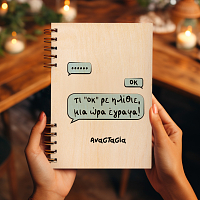 ......
ΟΚ
Τι "οκ" ρε ηλίθιε,
μια ώρα έγραφα!
Αναστασία